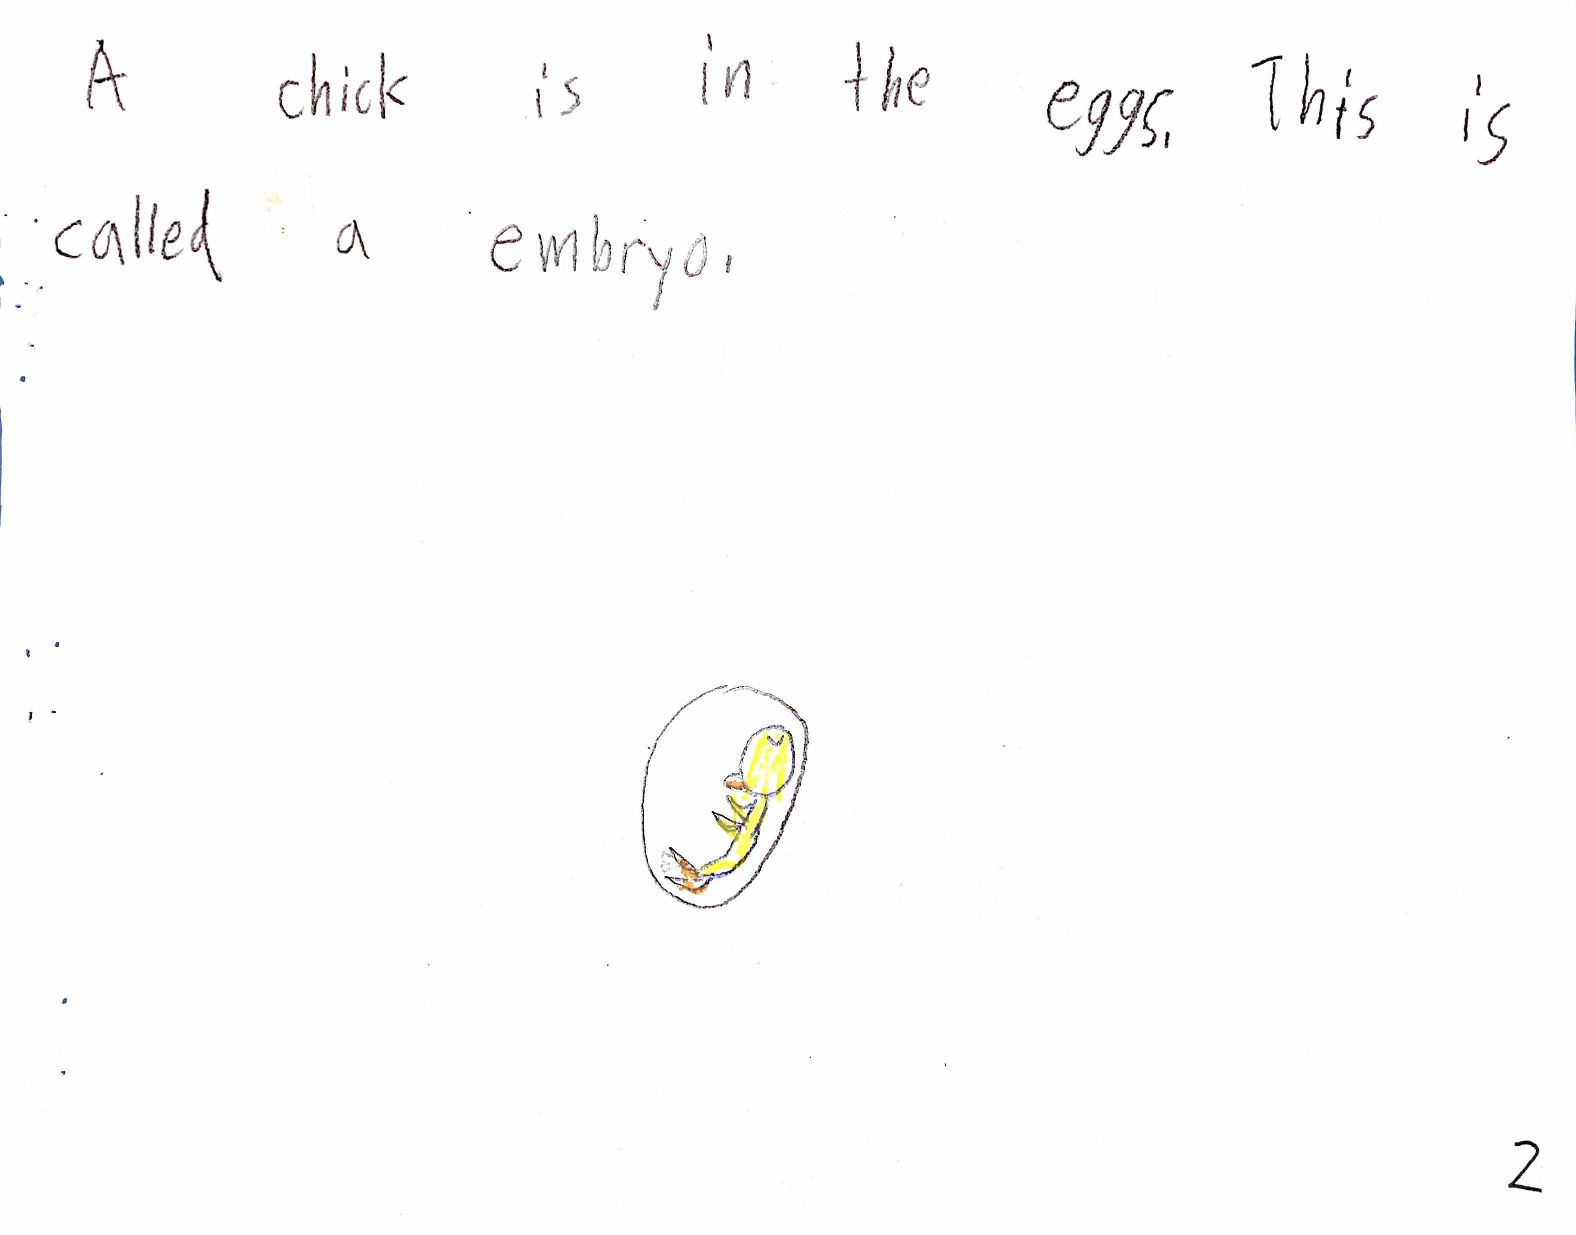 A chick is in the eggs. This is
called a embryo.
2